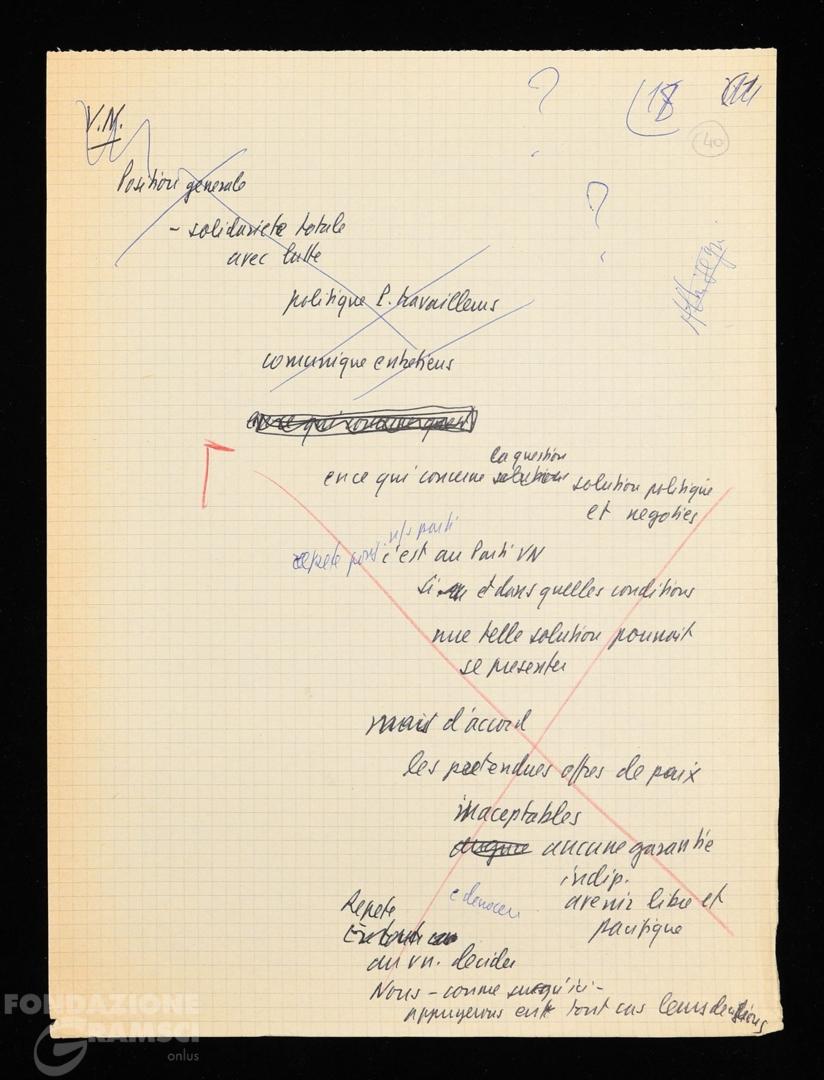 V.N.
18
40
Position generale
- solidariete totale
avec lutte
politique P. travailleurs
comunique entretiens
la question
en ce qui concerne solution politique
et negoties
n/s parti
repete c'est au Parti VN
si et dans quelles conditions
une telle solution pouvait
se presenter
mais d'accord
les pretendues offres de paix
inaceptables
aucune garantie
indip.
avenir libre et
pacifique
Repete
au vn. decider
Nous - comme jusqu'ici -
appuyerons en tout cas leurs decisions
FONDAZIONE
GRAMSCI
onlus